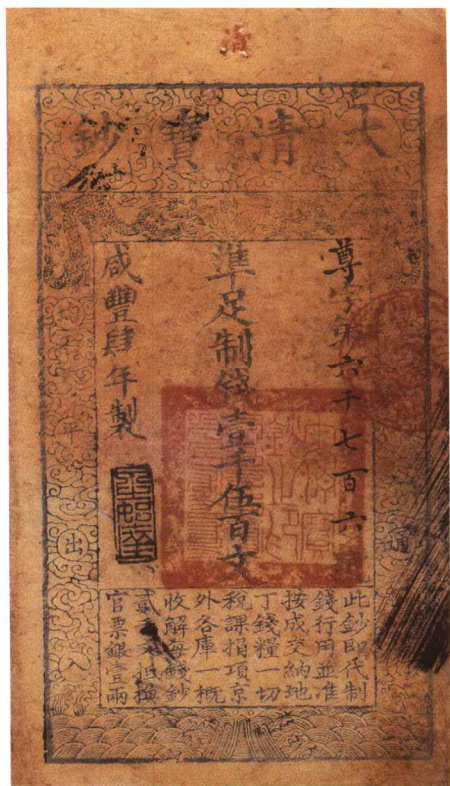 大清寶鈔
尊字第六千七百六
準足制錢壹千伍百文
咸豐肆年製
平出入
此鈔即代制
錢行用並准
按成交納地
丁錢糧一切
稅課捐項京
外各庫一概
收解每錢鈔
貳抵換
官票銀壹兩